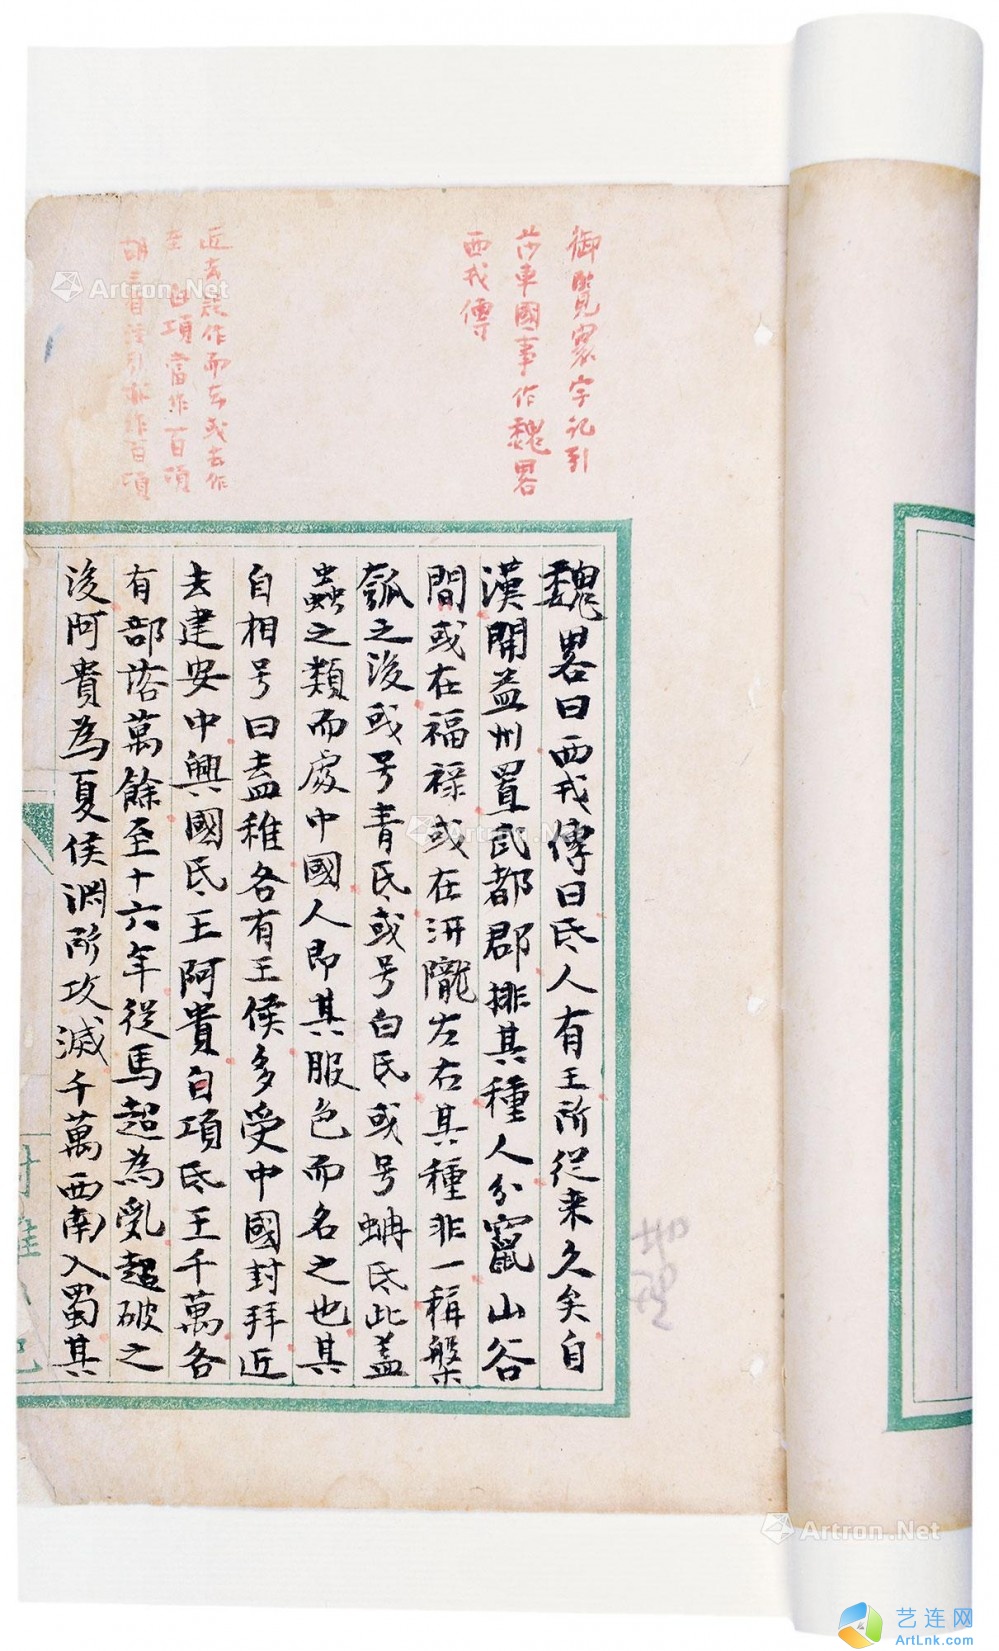 御覽寰宇記引
莎車國事作魏畧
西戎傳
近去 作而去或去作
至 白項當作百項
胡三省注引 作百項
魏畧曰西戎傳曰氐人有王所從来久矣自
漢開益州置武都郡排其種人分竄山谷
間或在福祿或在汧隴左右其種非一稱槃
瓠之後或号青氐或号白氐或号蚺氐此盖
蟲之類而處中國人即其服色而名之也其
自相号曰盍稚各有王侯多受中國封拜近
去建安中興國氐王阿貴白項氐王千萬各
有部落萬餘至十六年從馬超為亂超破之
後阿貴為夏侯渊所攻滅千萬西南入蜀其
地理
Artron.Net
Artron.Net
Artron.Net
艺连网
ArtLnk.com